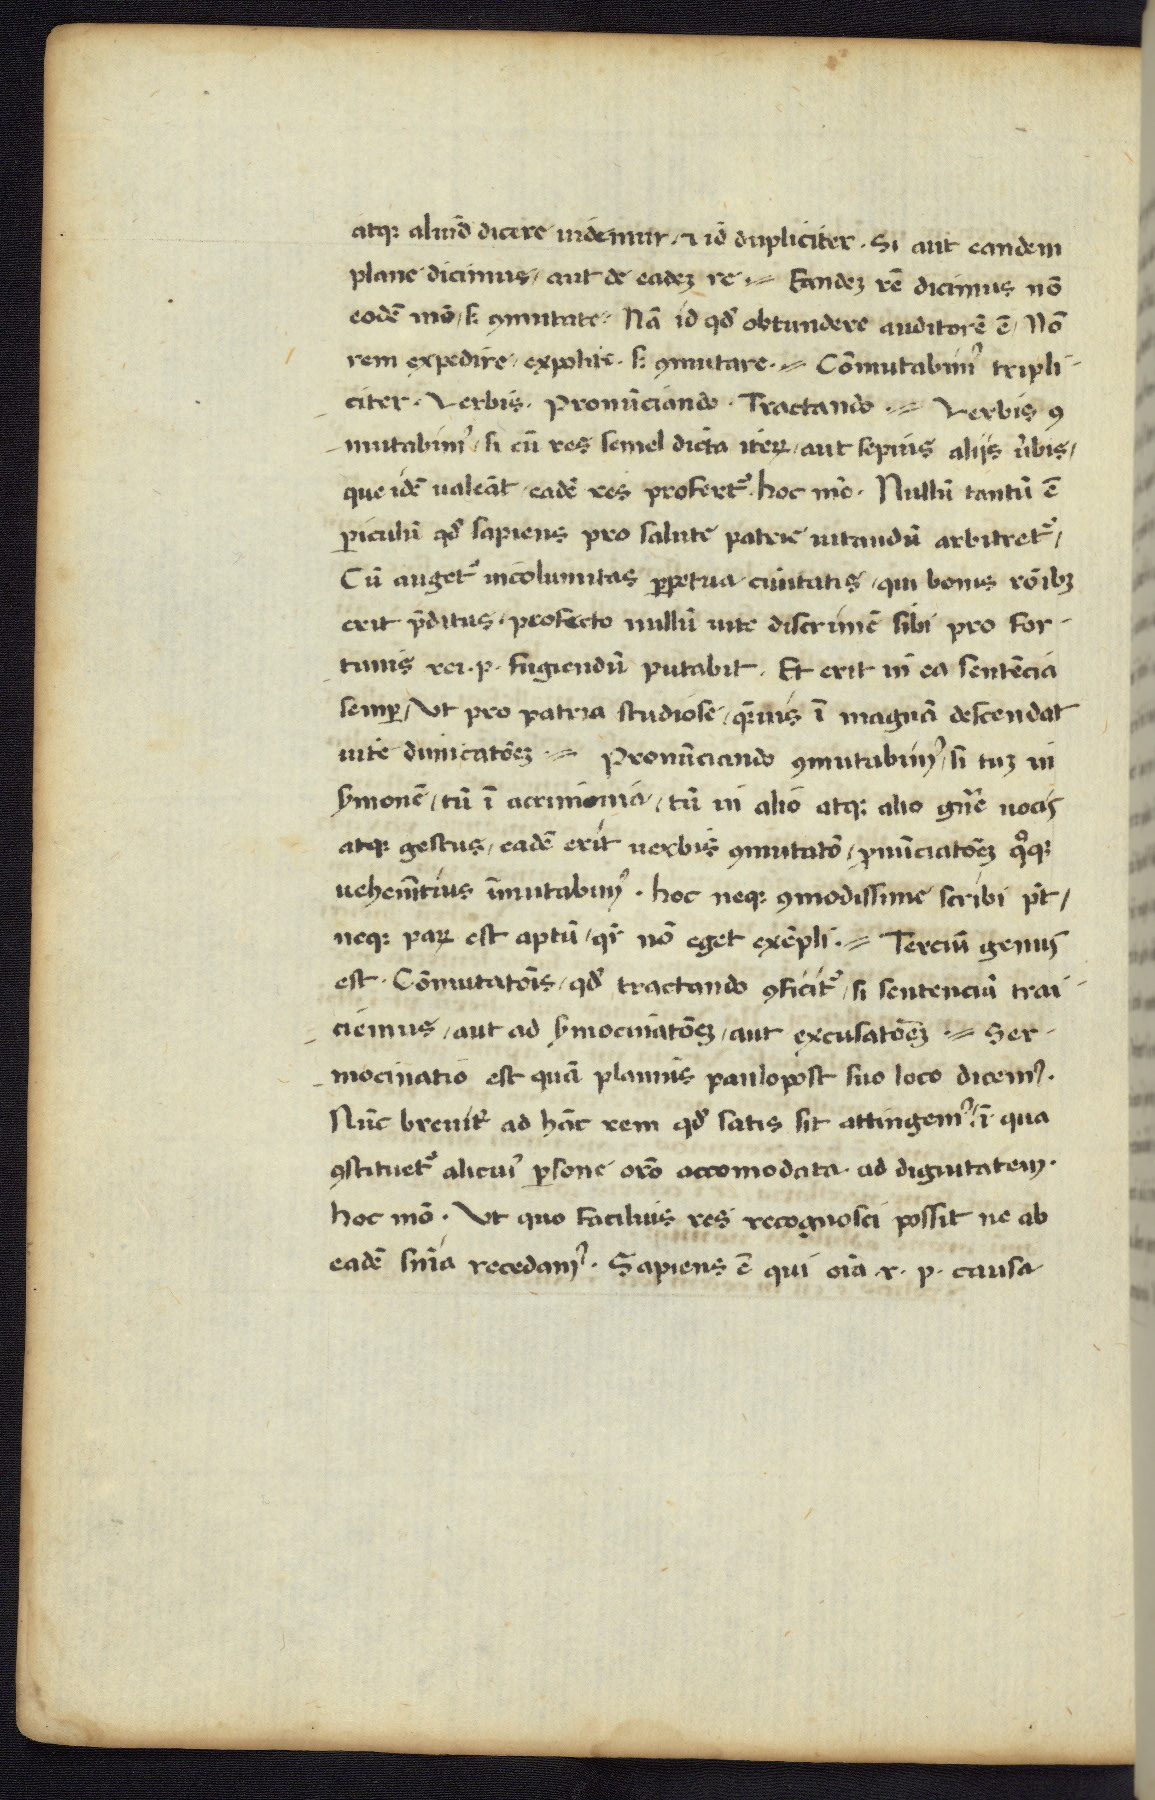 atqꝫ aliud̄ dicere uidemur · ⁊ id̄ dupliciter · Si aut eandem
plane dicimus / aut de eadeꝫ re ·= Eandeꝫ rē dicimus nō
eodē mō / sꝫ ꝯmutate · Nā id qd̓ obtundere auditorē ē / Nō
rem expedire / expolire · sꝫ ꝯmutare ·= Cōmutabimꝰ tripli-
citer · Verbis · Pronūciando · Tractando ·= Verbis ꝯ
-mutabimꝰ / si cū res semel dicta iteꝝ / aut sepius alijs ūbis /
que idē ualeāt / eadē res profertᷣ · hoc mō · Nullū tantū ē
ꝑiculū qd̓ sapiens pro salute patrie uitandū arbitretᷣ /
Cū augetᷣ incolumitas ꝑpetua ciuitatis / qui bonis rōibꝫ
erit p̄ditus / profecto nullū uite discrimē sibi pro for-
-tunis rei · p · fugiendū putabit · Et erit in ea sentēcia
semꝑ / Ut pro patria studiose / qᷓuis ī magnā descendat
uite dimicatōeꝫ ·= Pronūciando ꝯmutabimꝰ / si tuꝫ in
s̓monē / tū ī acrimonia / tū in alio atqꝫ alio gn̄e uocis
atqꝫ gestus / eadē erit uerbis ꝯmutatō / ꝓnūciatōeꝫ qͦqꝫ
uehemētius īmutabimꝰ · hoc neqꝫ ꝯmodissime scribi pt̄ /
neqꝫ paꝝ est aptū / qr̄ nō eget exēpli ·= Terciū genus
est · Cōmutatōis / qd̓ tractando ꝯficitᷣ / si sentenciā trai-
-ciemus / aut ad s̓mocinatōeꝫ / aut excusatōeꝫ ·= Ser-
-mocinatio est quā planius paulopost suo loco dicemꝰ ·
Nūc breuit̓ ad hāc rem qd̓ satis sit attingemꝰ · ī qua
ꝯstituetᷣ alicuiꝰ ꝑsone orō accomodata · ad dignitatem ·
hoc mō · Ut quo facilius res recognosci possit ne ab
eadē sn̄ia recedamꝰ · Sapiens ē qui oīa r · p · causa